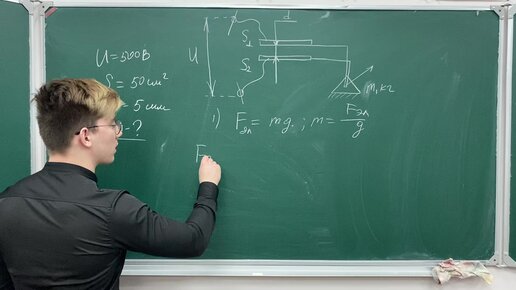 U = 500 В
S = 50 см²
= 5 мм
- ?
U
d
S₁
S₂
m, кг
1) Fэл = mg ; m = Fэл/g
F